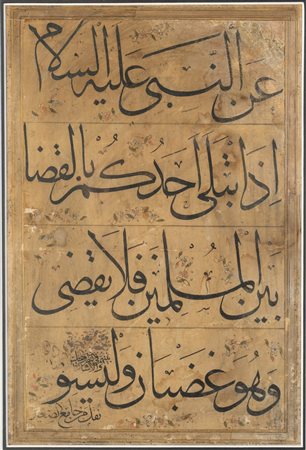 عن النبي عليه السلام
اذا ابتلي احدكم بالقضا
بين المسلمين فلا يقضي
وهو غضبان وليسو
نقل من جامع الصغير